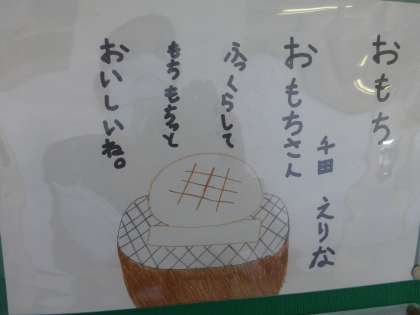 おもち
千田 えりな
おもちさん
ふっくらして
もちもちっと
おいしいね。